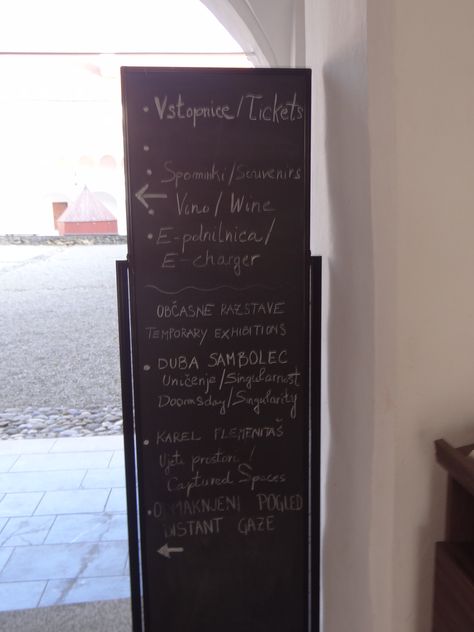 • Vstopnice/Tickets
•
Spominki/Souvenirs
← • Vino/Wine
• E-polnilnica/
E-charger
OBČASNE RAZSTAVE
TEMPORARY EXHIBITIONS
• DUBA SAMBOLEC
Uničenje/Singularnost
Doomsday/Singularity
• KAREL PLEMENITAŠ
Ujeti prostori/
Captured Spaces
• ODMAKNJENI POGLED
DISTANT GAZE
←